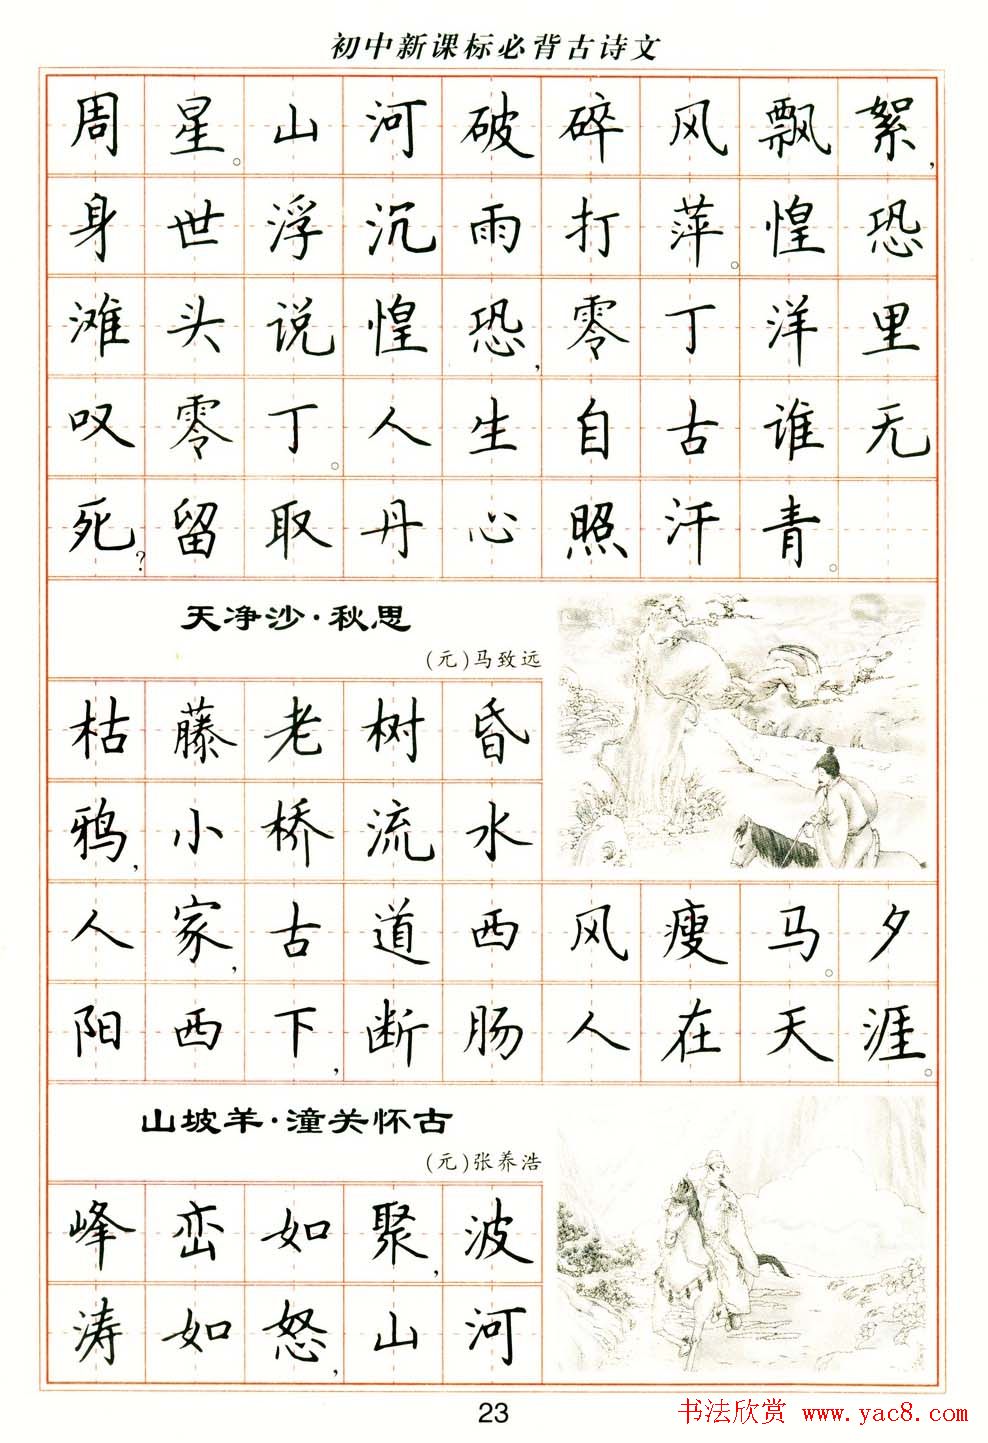 初中新课标必背古诗文
周星。山河破碎风飘絮，
身世浮沉雨打萍。惶恐
滩头说惶恐，零丁洋里
叹零丁。人生自古谁无
死？留取丹心照汗青。
天净沙·秋思
(元)马致远
枯藤老树昏
鸦，小桥流水
人家，古道西风瘦马。夕
阳西下，断肠人在天涯。
山坡羊·潼关怀古
(元)张养浩
峰峦如聚，波
涛如怒，山河
23
书法欣赏 www.yac8.com